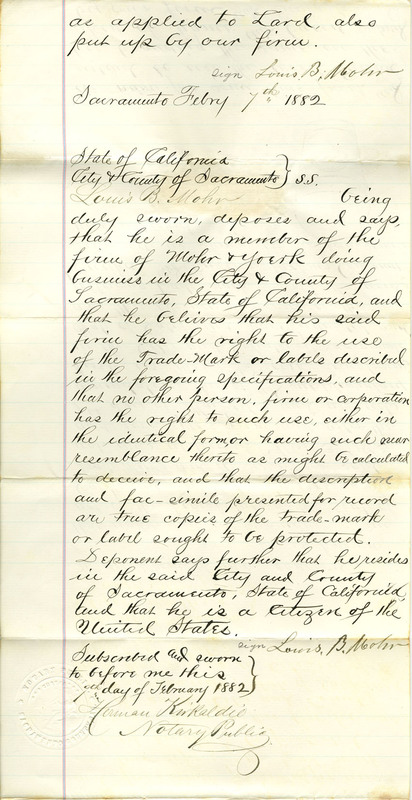 as applied to Lard, also
put up by our firm.
sign Louis B. Mohr
Sacramento Febry 7th 1882
State of California
City & County of Sacramento } S.S.
Louis B. Mohr being
duly sworn, deposes and says,
that he is a member of the
firm of Mohr & Yoerk doing
business in the City & County of
Sacramento, State of California, and
that he believes that his said
firm has the right to the use
of the Trade-Mark or labels described
in the foregoing specifications, and
that no other person, firm or corporation
has the right to such use, either in
the identical form, or having such near
resemblance thereto as might be calculated
to deceive, and that the description
and fac-simile presented for record
are true copies of the trade-mark
or label sought to be protected.
Deponent says further that he resides
in the said City and County
of Sacramento, State of California,
and that he is a Citizen of the
United States.
sign Louis, B. Mohr
Subscribed and sworn
to before me this
7th day of February 1882 }
Herman Kirkaldie
Notary Public